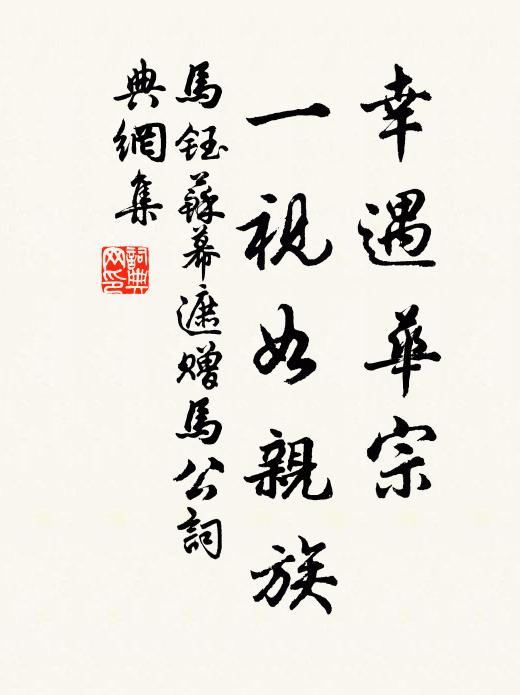 幸遇華宗
一視如親族
馬鈺蘇幕遮贈馬公詞
典網集
詞典
网印